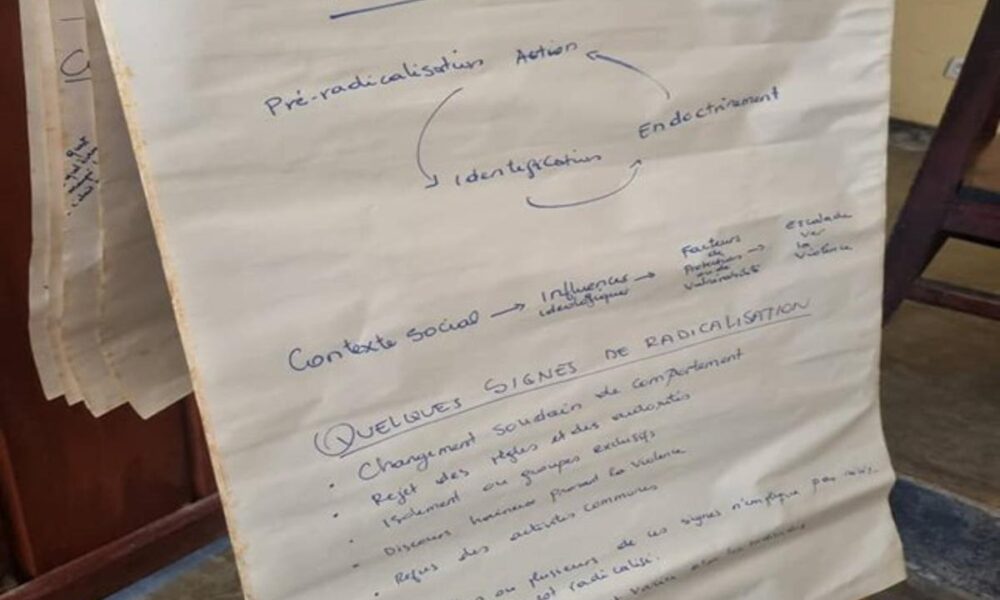 Pré-radicalisation Action
Endoctrinement
Identification
Contexte social → Influences idéologiques → Facteurs de Protection ou de Vulnérabilité → Escalade ver la Violence
QUELQUES SIGNES DE RADICALISATION
• Changement soudain de comportement
• Rejet des règles et des autorités
• Isolement ou groupes exclusifs
• Discours haineux prônant la violence
• Refus des activités communes
ou plusieurs de ces signes n'implique pas
radicalisé.